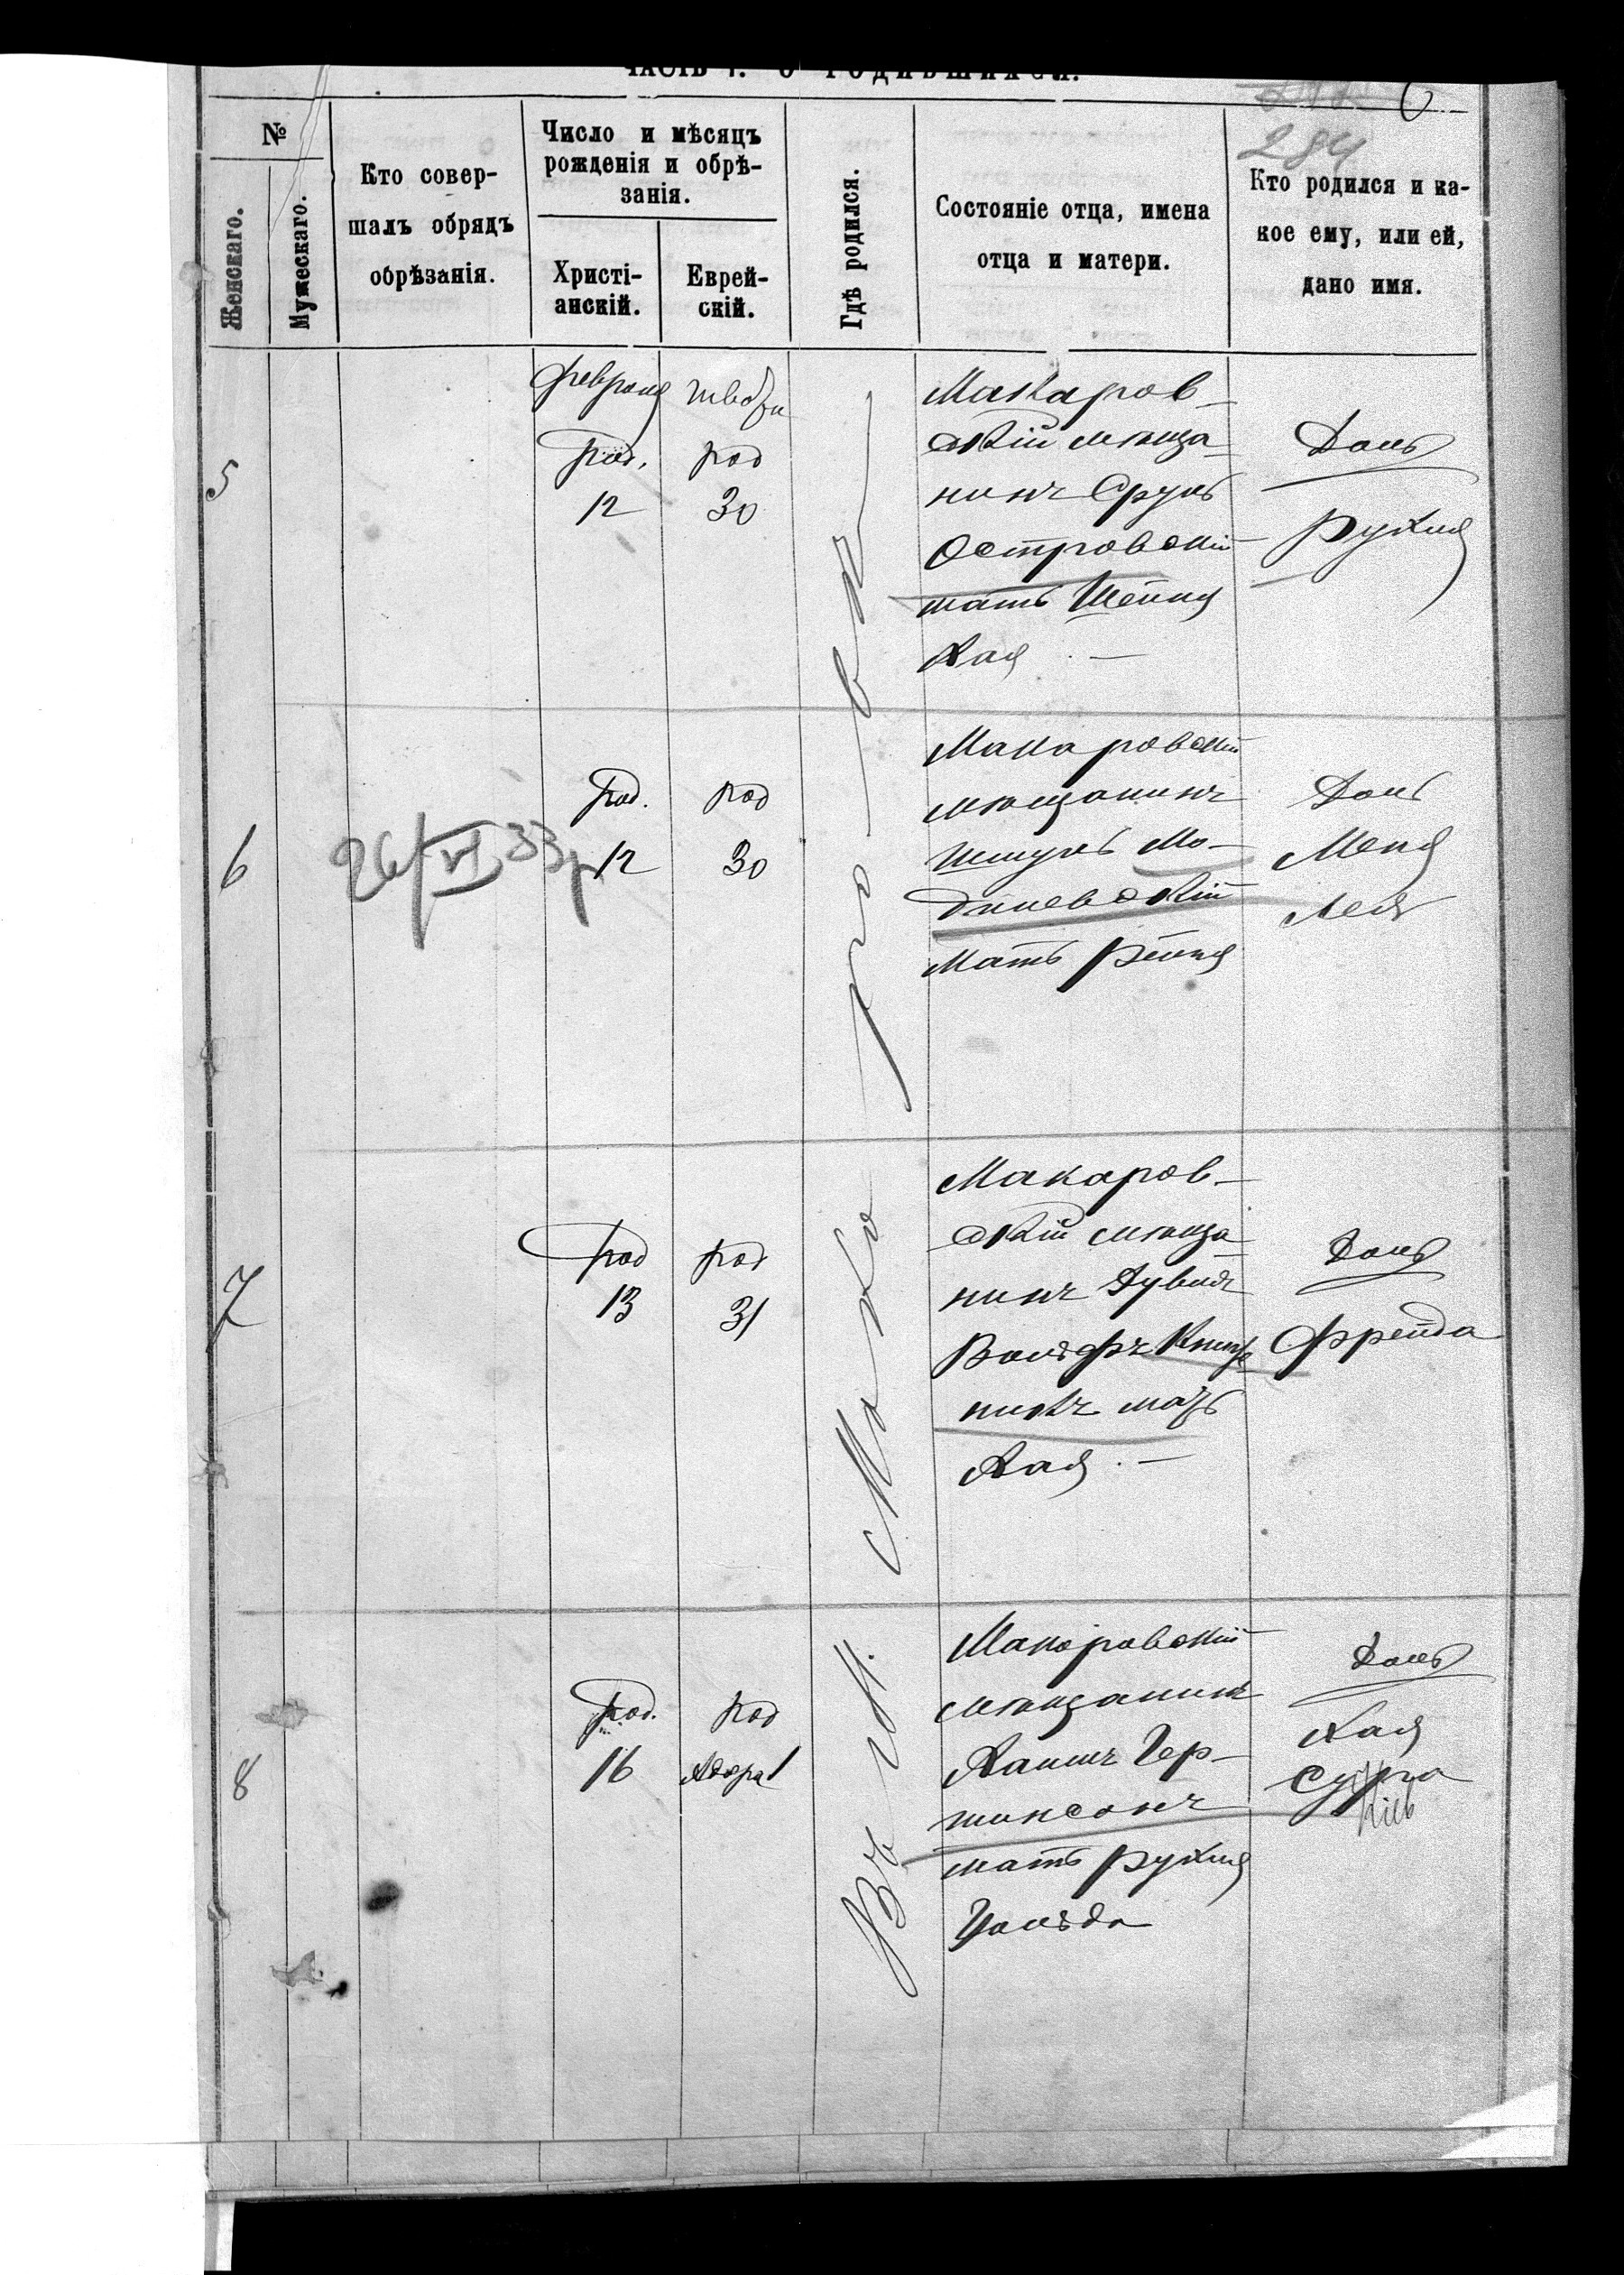 ЧАСТЬ I. О РОДИВШИХСЯ.
6
284
№
Женскаго.
Мужескаго.
Кто совер-
шалъ обрядъ
обрѣзанія.
Число и мѣсяцъ
рожденія и обрѣ-
занія.
Христі-
анскій.
Еврей-
скій.
Гдѣ родился.
Состояніе отца, имена
отца и матери.
Кто родился и ка-
кое ему, или ей,
дано имя.
Въ м. Макаровѣ
5
Февраля
род.
12
род
30
Макаров-
скій мѣща-
нинъ Сруль
Островскій
мать Шейня
Хая
Дочь
Рухля
6
26/VI 33р
род.
12
род
30
Макаровскій
мѣщанинъ
Шмуль Мо-
дилевскій
Мать Рейзя
Дочь
Меня
Лея
7
род
13
род
31
Макаров-
скій мѣща-
нинъ Дувидъ
Вольфъ
никъ мать
Хая
Дочь
Фрейда
8
род.
16
род
Адора 1
Макаровскій
мѣщанинъ
Хаимъ Гер-
шинсонъ
мать Рухля
Дочь
Хая
Сура
Київ